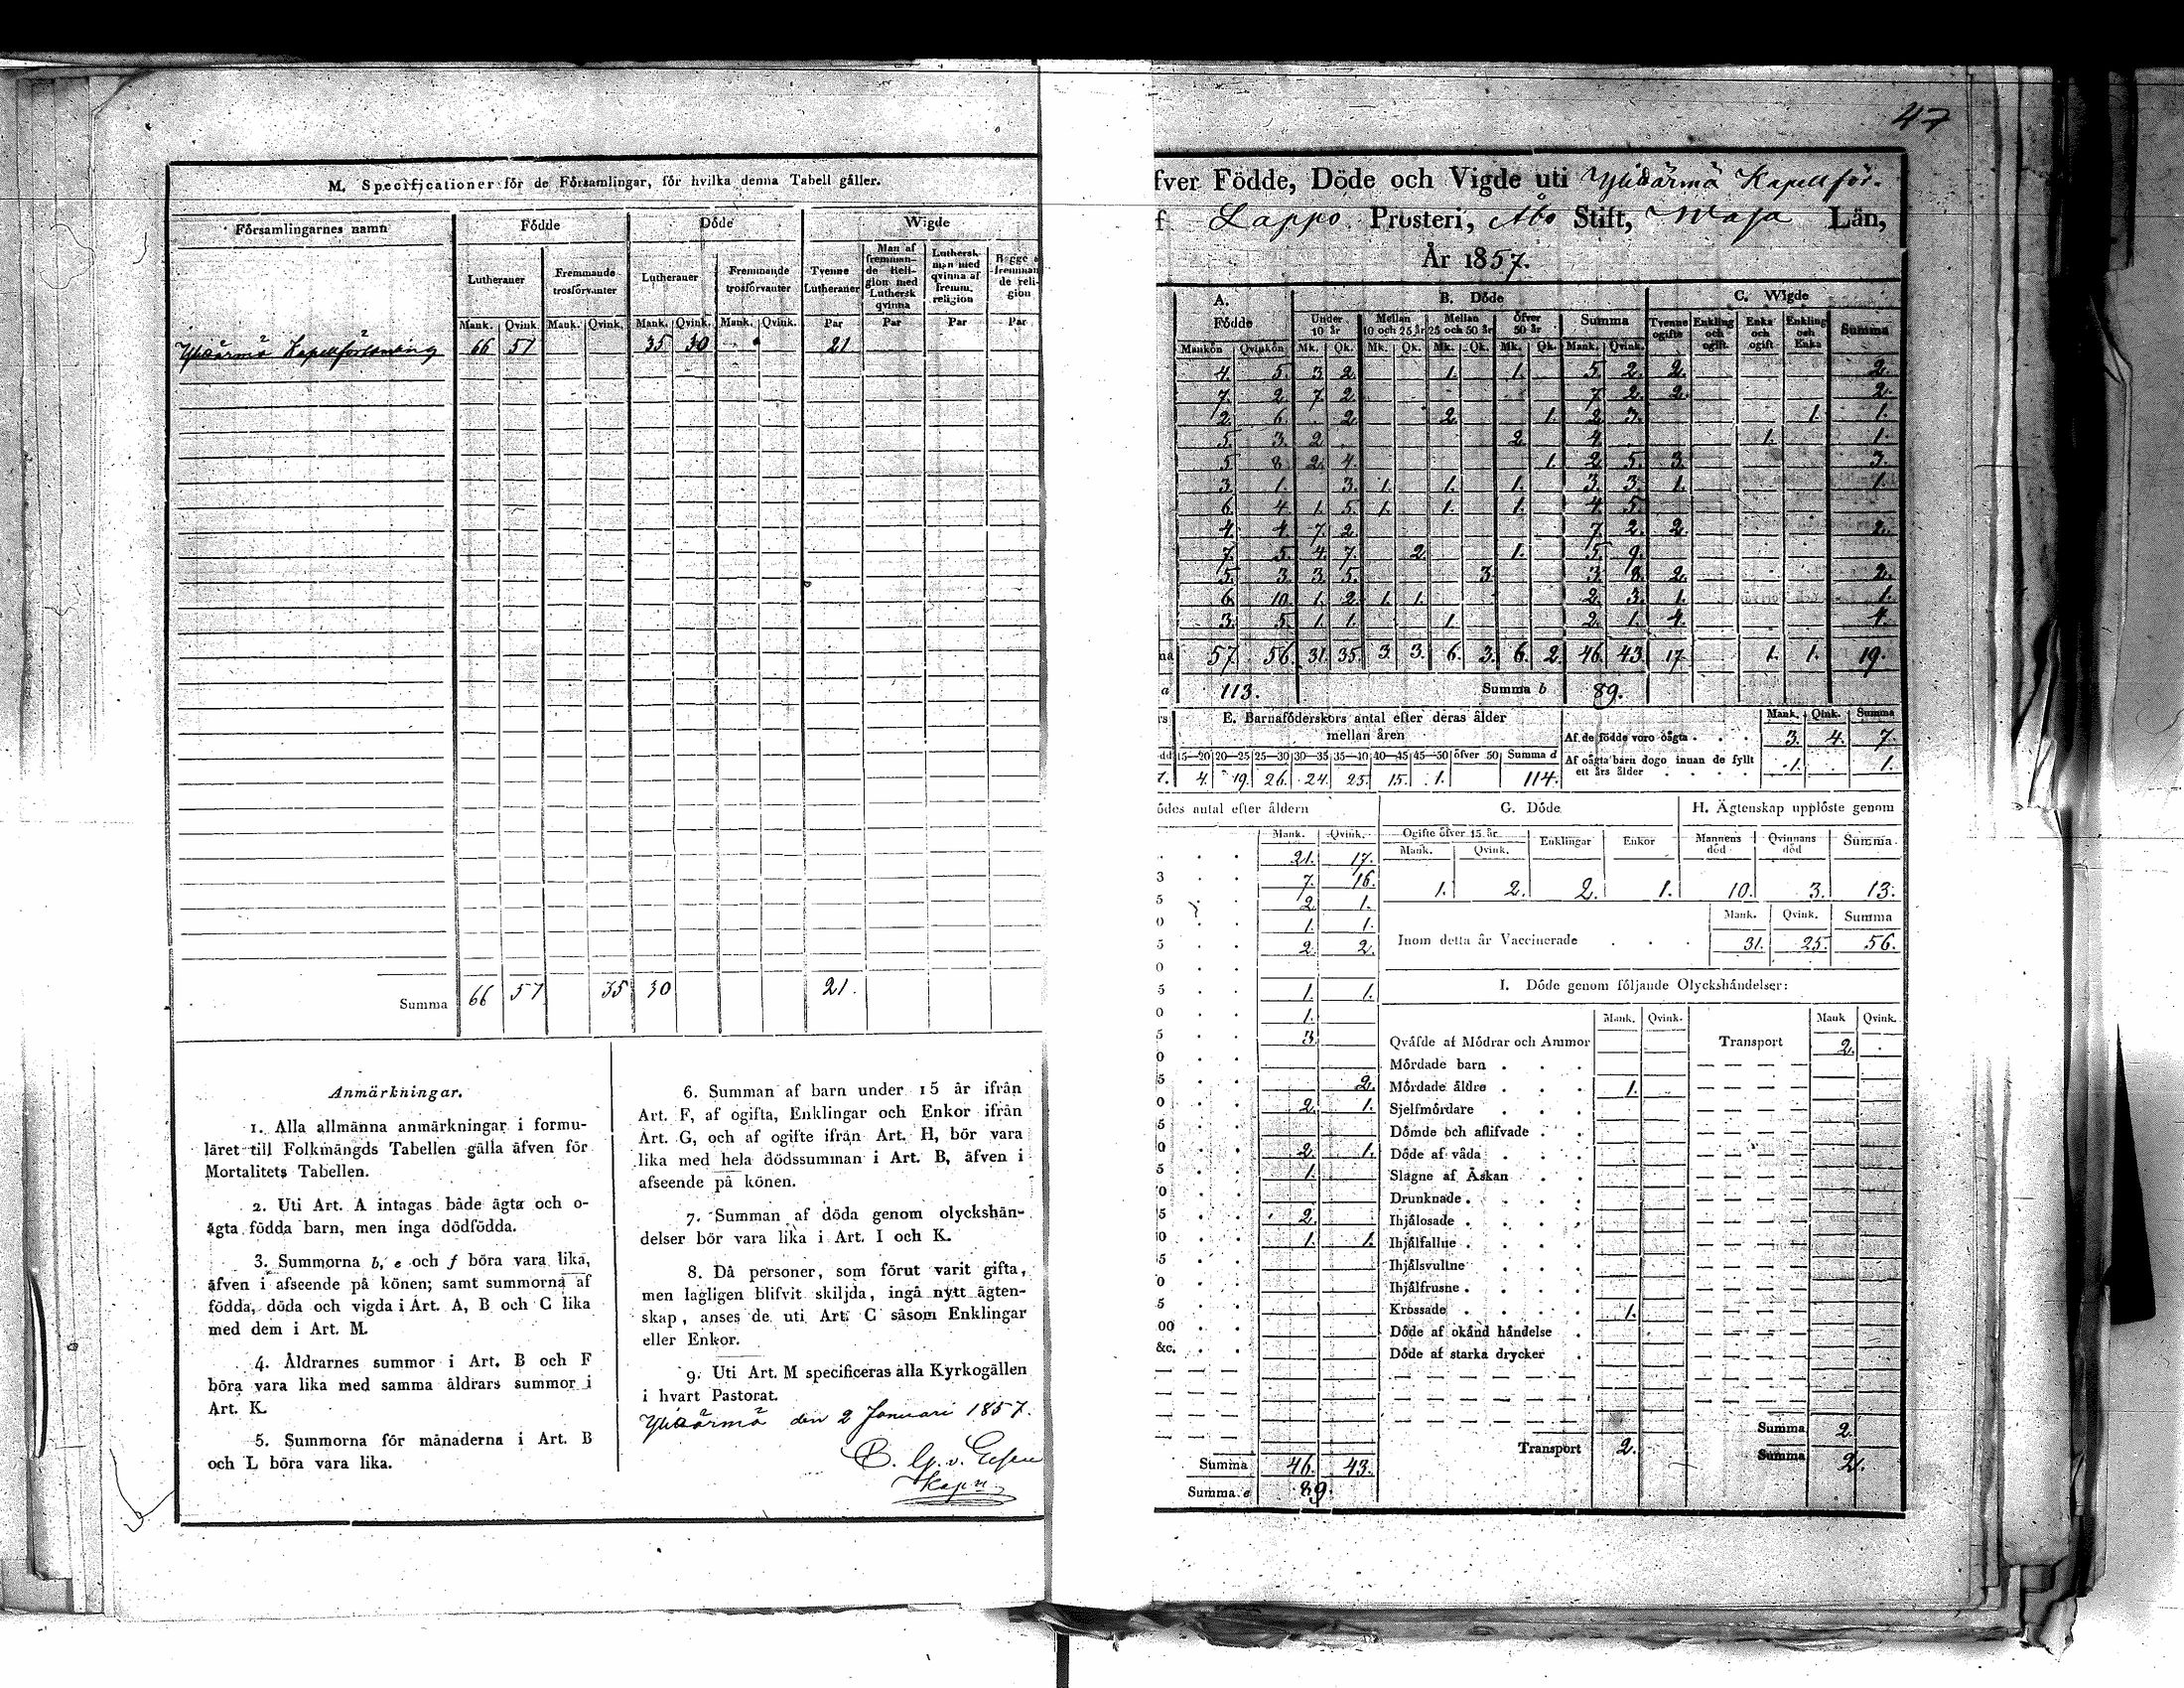 M. Specificationer för de Församlingar, för hvilka denna Tabell gäller.
Församlingarnes namn Födde Döde Wigde
Lutheraner Fremmande trosförvanter Lutheraner Fremmande trosförvanter Tvenne Lutheraner Man af fremmande Religion med Luthersk qvinna Luthersk man med qvinna af fremm. religion Begge a fremman de reli- gion
Mank. Qvink. Mank. Qvink. Mank. Qvink. Mank. Qvink. Par Par Par Par
Ylihärmä Kapellförsamling 66 57 35 30 21
Summa 66 57 35 30 21.
Anmärkningar.
1. Alla allmänna anmärkningar i formu-
läret till Folkmängds Tabellen gälla äfven för
Mortalitets Tabellen.
2. Uti Art. A intagas både ägta och o-
ägta födda barn, men inga dödfödda.
3. Summorna b, e och f böra vara lika,
äfven i afseende på könen; samt summorna af
födda, döda och vigda i Art. A, B och C lika
med dem i Art. M.
4. Åldrarnes summor i Art. B och F
böra vara lika med samma åldrars summor i
Art. K.
5. Summorna för månaderna i Art. B
och L böra vara lika.
6. Summan af barn under 15 år ifrån
Art. F, af ogifta, Enklingar och Enkor ifrån
Art. G, och af ogifte ifrån Art. H, bör vara
lika med hela dödssumman i Art. B, äfven i
afseende på könen.
7. Summan af döda genom olyckshän-
delser bör vara lika i Art. I och K.
8. Då personer, som förut varit gifta,
men lagligen blifvit skiljda, ingå nytt ägten-
skap, anses de uti Art. C såsom Enklingar
eller Enkor.
9. Uti Art. M specificeras alla Kyrkogällen
i hvart Pastorat.
Ylihärmä den 2 Januari 1857.
Kapn.
47
fver Födde, Döde och Vigde uti Ylihärmä Kapellför.
f Lappo Prosteri, Åbo Stift, Wasa Län,
År 1857.
A. Födde B. Döde C. Wigde
Under 10 år Mellan 10 och 25 år Mellan 25 och 50 år Öfver 50 år Summa Tvenne ogifte Enkling och ogift. Enka och ogift Enkling och Enka Summa
Mankön Qvinkön Mk. Qk. Mk. Qk. Mk. Qk. Mk. Qk. Mank. Qvink.
4. 5. 3 2. 1. 1. 5. 2. 2. 2.
7. 2. 7. 2. 7 2. 2. 2.
2. 6. 2. 2. 1. 2. 3. 1. 1.
5. 3. 2. 2. 4. 1. 1.
5 8. 2. 4. 1. 2. 5. 3. 3.
3. 1. 3. 1. 1. 1. 3. 3. 1. 1.
6. 4. 1. 5. 1. 1. 1. 4. 5.
4. 4. 7. 2. 7. 2. 2. 2.
7. 5. 4. 7. 2. 1. 5. 9.
5. 3. 3. 5. 3. 3. 8. 2. 2.
6. 10. 1. 2. 1. 1. 2. 3. 1. 1.
3. 5. 1. 1. 1. 2. 1. 4. 4.
na 57. 56. 31. 35. 3. 3. 6. 3. 6. 2. 46. 43. 17. 1. 1. 19.
a 113. Summa b 89.
E. Barnaföderskors antal efter deras ålder
mellan åren
15—20 20—25 25—30 30—35 35—40 40—45 45—50 öfver 50 Summa d
4. 19. 26. 24. 25. 15. 1. 114.
Mank. Qink. Summa
Af de födde voro oägta . . . 3. 4. 7.
Af oägta barn dogo innan de fyllt
ett års ålder . . . . 1. 1.
ödes antal efter åldern
Mank. Qvink.
21. 17.
3 7. 16.
5 2. 1.
0 1. 1.
5 2. 2.
0
5 1. 1.
0 1.
5 3.
0
5 2.
0 2. 1.
5
0 2. 1.
5 1.
0
5 2.
0 1. 1.
5
0
5
00
&c.
Summa 46. 43.
Summa e 89.
G. Döde
Ogifte öfver 15 år Enklingar Enkor
Mank. Qvink.
1. 2. 2. 1.
H. Ägtenskap upplöste genom
Mannens död Qvinnans död Summa
10. 3. 13.
Mank. Qvink. Summa
Inom detta år Vaccinerade . . . 31. 25. 56.
I. Döde genom följande Olyckshändelser:
Mank. Qvink. Mank Qvink.
Qväfde af Mödrar och Ammor Transport 2.
Mördade barn . . .
Mördade äldre . . . 1.
Sjelfmördare . . .
Dömde och aflifvade . .
Döde af våda . . .
Slagne af Åskan . .
Drunknade . . . .
Ihjälosade . . . .
Ihjälfallne . . . .
Ihjälsvultne . . .
Ihjälfrusne . . . .
Krossade . . . . 1.
Döde af okänd händelse .
Döde af starka drycker .
Summa 2.
Transport 2. Summa 2.